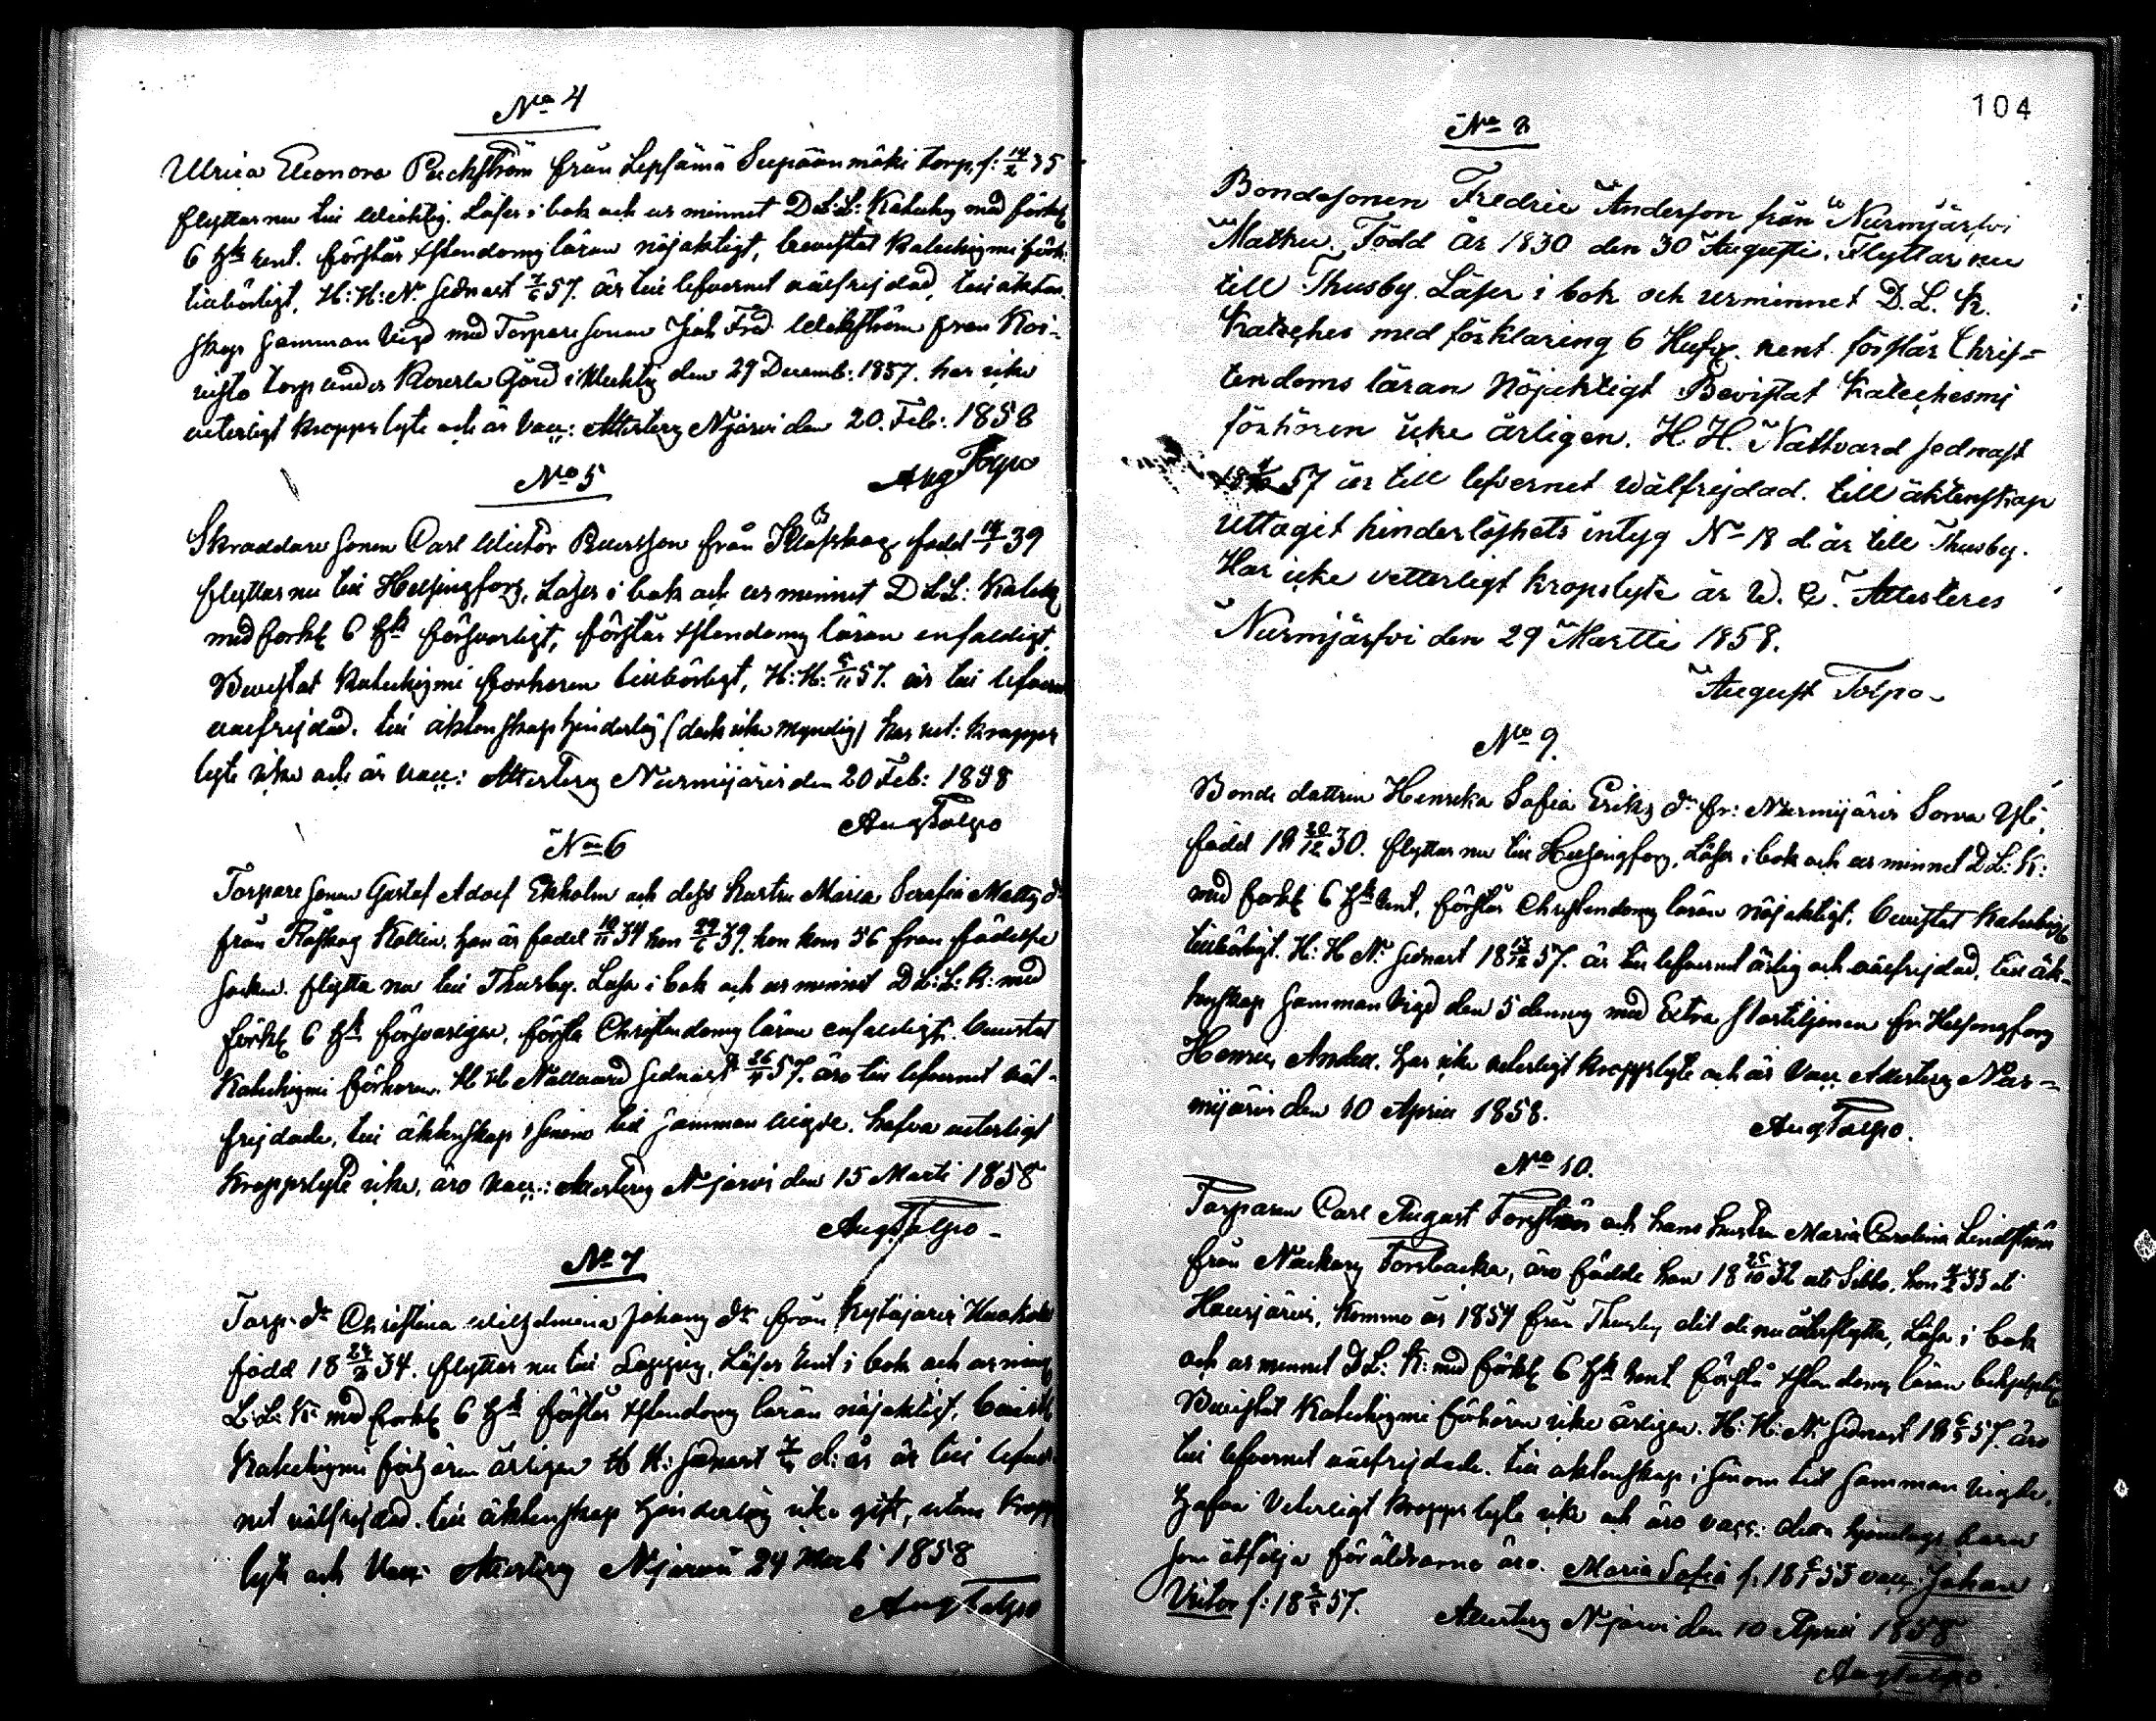 No 4
Ulrica Eleonora Packström från Lepsämä Seepäänmäki torp, f: 14/2 35
flyttar nu till Wichtis. Läser i bok och ur minnet D.L.L: Katechs med förkl
6 Hft rent. förstår Xstendoms läran nöjaktigt, bevistat Katechismi förh.
tillbörligt, H: H: N. sednast 57. är till lefvernet välfrejdad, till äkten-
skap samman vigd med Torpare sonen Joh Fred Wickström från Koi-
visto torp under Gård i Wichtis den 29 Decemb: 1857. har icke
veterligt kropps lyte och är vacc: Attesteras Njärvi den 20. Feb: 1858
Aug Tolpo
No 5
Skräddare sonen Carl Wictor från Klöfskog född 14/1 39
flyttar nu till Helsingfors, Läser i bok och ur minnet D L.L: Katech
med förkl 6 Hft försvarligt, förstår Xstendoms läran enfaldigt,
Bevistat Katechismi förhören tillbörligt, H: H: 57. är till lefvern
välfrejdad. till äktenskap hinderlös (dock icke myndig) har vet: kropps
lyte icke och är vacc: Attesteras Nurmijärvi den 20 Feb: 1858
Aug Tolpo
No 6
Torpare sonen Gustaf Adolf Ekholm och dess hustru Maria Serafia Matts dr
från Röfskog Kallin. han är född 10/11 34 hon 29/6 39. hon kom 56 från födelse
socken. flytta nu till Thusby. Läsa i bok och ur minnet D L: L: K: med
förkl 6 Hft försvarligen, förstå Christendoms läran enfaldigt. bevistat
Katechismi förhören. H H Nattvard sednast 57. äro till lefvernet väl-
frejdade, till äktenskap i sinom tid samman vigde. hafva veterligt
Kroppslyte icke, äro vacc: Attesteras Njärvi den 15 Marti 1858
Aug Tolpo
No 7
Torp. dr Christina Wilhelmina Johans dr från Kytäjärvi
född 18 34. flyttar nu till Loppis, Läser rent i bok och ur minn
L: L: K: med förkl 6 Hft förstår Xstendoms läran nöjaktigt, bevist
Katechismi förhören årligen H H: sednast d: år är till lefver-
net välfrejdad. till äktenskap hinderlös icke gift, utan kropp
lyte och Vacc: Attesteras Njärvi 24 Marti 1858
Aug Tolpo
104
No 8
Bondesonen Fredric Anderson från Nurmijärfvi
Mathu. Född År 1830 den 30 Augusti. Flyttar nu
till Thusby. Läser i bok och urminnet D. L. K.
Kateches med förklaring 6 Hufv. rent. förstår Chris=
tendoms läran Nöjaktigt Bevistat Katechesmi
förhören icke årligen. H. H. Nattvard sednast
57 är till lefvernet wälfrejdad. till äktenskap
uttagit hinderlöshets intyg No 18 d. är till Thusby.
Har icke vetterligt kropslyte är W. C. Attesteres
Nurmijärfvi den 29 Martti 1858.
August Tolpo -
No 9.
Bonde dottren Henrika Sofia Eriks dr fr: Nurmijärvi
född 18 20/12 30. flyttar nu till Helsingfors, Läser i bok och ur minnet D L: K:
med förkl 6 Hft rent, förstår Christendoms läran nöjaktigt. bevistat Katechis
tillbörligt. H: H N: sednast 18 57. är till lefvernet ärlig och välfrejdad, till äk-
tenskap samman vigd den 5 dennes med Extra fr Helsingfors
Henric har icke veterligt kroppslyte och är Vacc Attesteras Nur=
mijärvi den 10 April 1858.
Aug Tolpo.
No 10.
Torparen Carl August Forsström och hans hustru Maria Carolina Lindström
från Nackars Forsbacka, äro födde han 18 25/10 32 uti Sibbo, hon 35 uti
Hausjärvi, Kommo år 1854 från Thusby dit de nu återflytta, Läsa i bok
och ur minnet D L: K: med förkl 6 Hft rent förstå Xstendoms läran
Bevistat Katechismi förhören icke årligen. H: H: N: sednast 18 57. äro
till lefvernet välfrejdade. till äktenskap i sinom tid samman vigde.
hafva Veterligt kropps lyte icke och äro vacc: detta hjonelags barn
som åtfölja föräldrarna äro. Maria Sofia f: 18 55 vacc Johan
Victor f: 18 57. Attesteras Njärvi den 10 April 1858
Aug Tolpo.